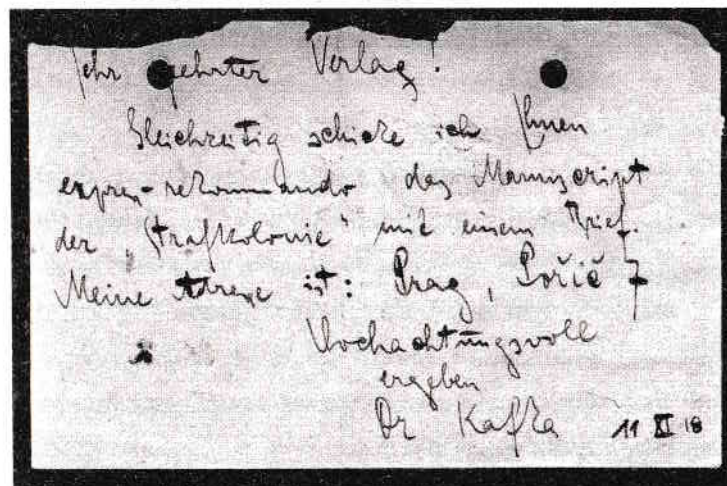 Sehr geehrter Verlag!
Gleichzeitig schicke ich Ihnen
express-rekommando das Manuscript
der „Strafkolonie" mit einem Brief.
Meine Adresse ist: Prag, Pořič 7
Hochachtungsvoll
ergeben
Dr Kafka 11 XI 18